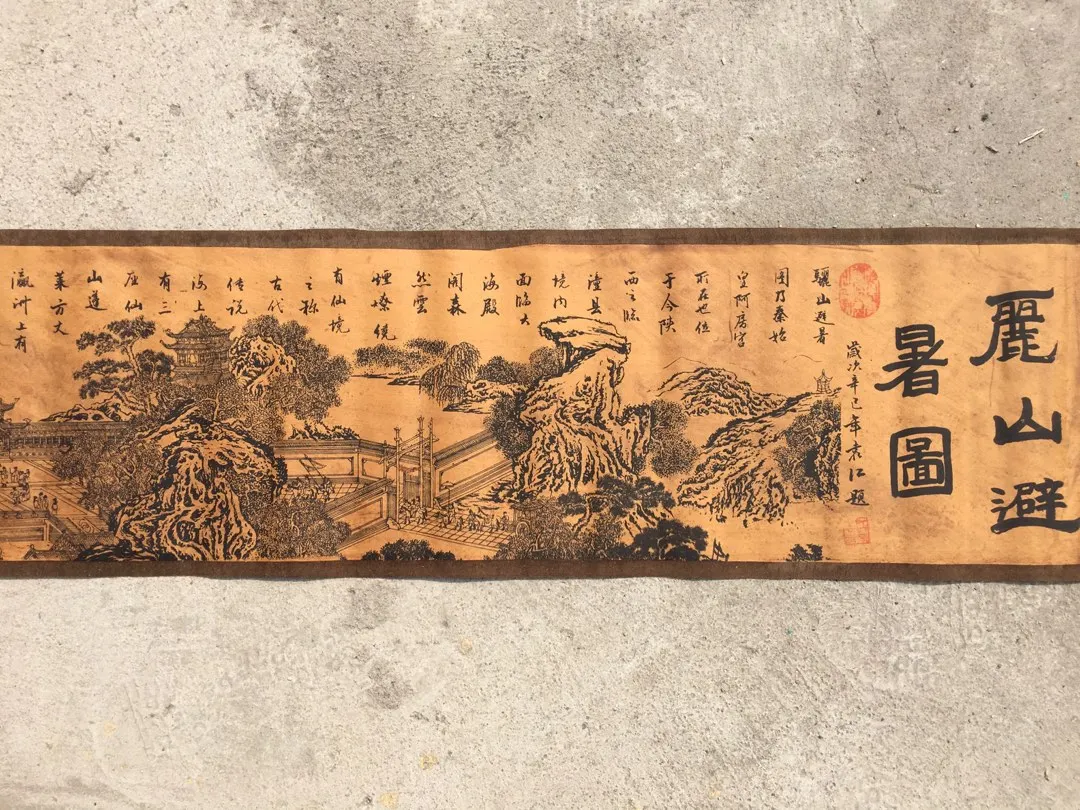 麗山避
暑圖
歲次辛巳年袁江題
驪山避暑
圖乃秦始
皇阿房宮
所在地位
于今陝
西之臨
潼县
境内
面临大
海殿
閣森
然雲
煙燎繞
有仙境
之称
古代
传说
海上
有三
座仙
山蓬
莱方丈
瀛洲上有